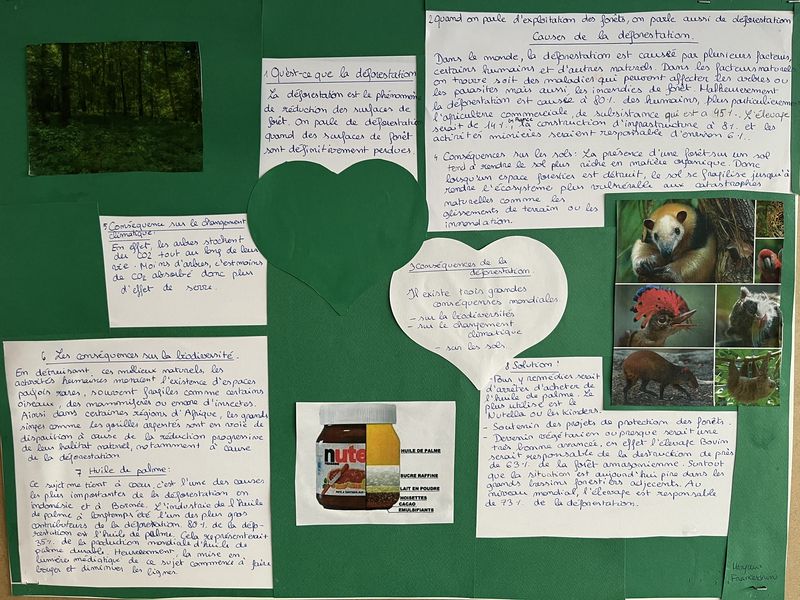 1 Qu'est-ce que la déforestation
La déforestation est le phénomène
de réduction des surfaces de
forêt. On parle de déforestation
quand des surfaces de forêt
sont définitivement perdues.
2 Quand on parle d'exploitation des forêts, on parle aussi de déforestation
Causes de la déforestation.
Dans le monde, la déforestation est causée par plusieurs facteurs,
certains humains et d'autres naturels. Dans les facteurs naturels
on trouve soit des maladies qui peuvent affecter les arbres ou
les parasites mais aussi, les incendies de forêt. Malheureusement
la déforestation est causée à 80% des humains, plus particulièrement
l'agriculture commerciale, de subsistance qui est a 45%. L'élevage
serait de 14% en France, la construction d'infrastructure à 8% et les
activités minières seraient responsable d'environ 6%.
4 Conséquences sur les sols: La présence d'une forêt sur un sol
tend à rendre le sol plus riche en matière organique. Donc
lorsqu'un espace forestier est détruit, le sol se fragilise jusqu'à
rendre l'écosystème plus vulnérable aux catastrophes
naturelles comme les
glissements de terrain ou les
innondation.
5 Conséquence sur le changement
climatique:
En effet, les arbres stockent
du CO2 tout au long de leur
vie. Moins d'arbres, c'est moins
de CO2 absorbé donc plus
d'effet de serre.
3 Conséquences de la
déforestation
Il existe trois grandes
conséquenses mondiales.
- sur la biodiversités
- sur le changement
climatique
- sur les sols
6 Les conséquences sur la biodiversité.
En détruisant, ces milieux naturels, les
activités humaines menacent l'existence d'espaces
parfois rares, souvent fragiles comme certains
oiseaux, des mammifères ou encore d'insectes.
Ainsi dans certaines régions d'Afrique, les grands
singes comme les gorilles argentés sont en voie de
disparition à cause de la réduction progressive
de leur habitat naturel, notamment à cause
de la déforestation
7 Huile de palme:
Ce sujet me tient à cœur, c'est l'une des causes
les plus importantes de la déforestation en
Indonésie et à Bornéo. L'industrie de l'huile
de palme à longtemps été l'un des plus gros
contributeurs de la déforestation 80% de la défo-
restation est l'huile de palme. Cela représenterait
de la production mondiale d'huile de
palme durable. Heureusement, la mise en
lumière médiatique de ce sujet commence à faire
bouger et diminuer les lignes.
nute
HUILE DE PALME
SUCRE RAFFINE
LAIT EN POUDRE
NOISETTES
CACAO
EMULSIFIANTS
8 Solution:
- Pour y remédier serait
d'arrêter d'acheter de
l'huile de palme. Le
plus utilisé est le
Nutella ou les kinders.
- Soutenir des projets de protection des forêts.
- Devenir végétarien ou presque serait une
très bonne avancée, en effet l'élevage Bovin
serait responsable de la destruction de près
de 63% de la forêt amazonienne. Surtout
que la situation est aujourd'hui pire dans les
grands bassins forestiers adjecents. Au
niveau mondial, l'élevage est responsable
de 73% de la déforestation.